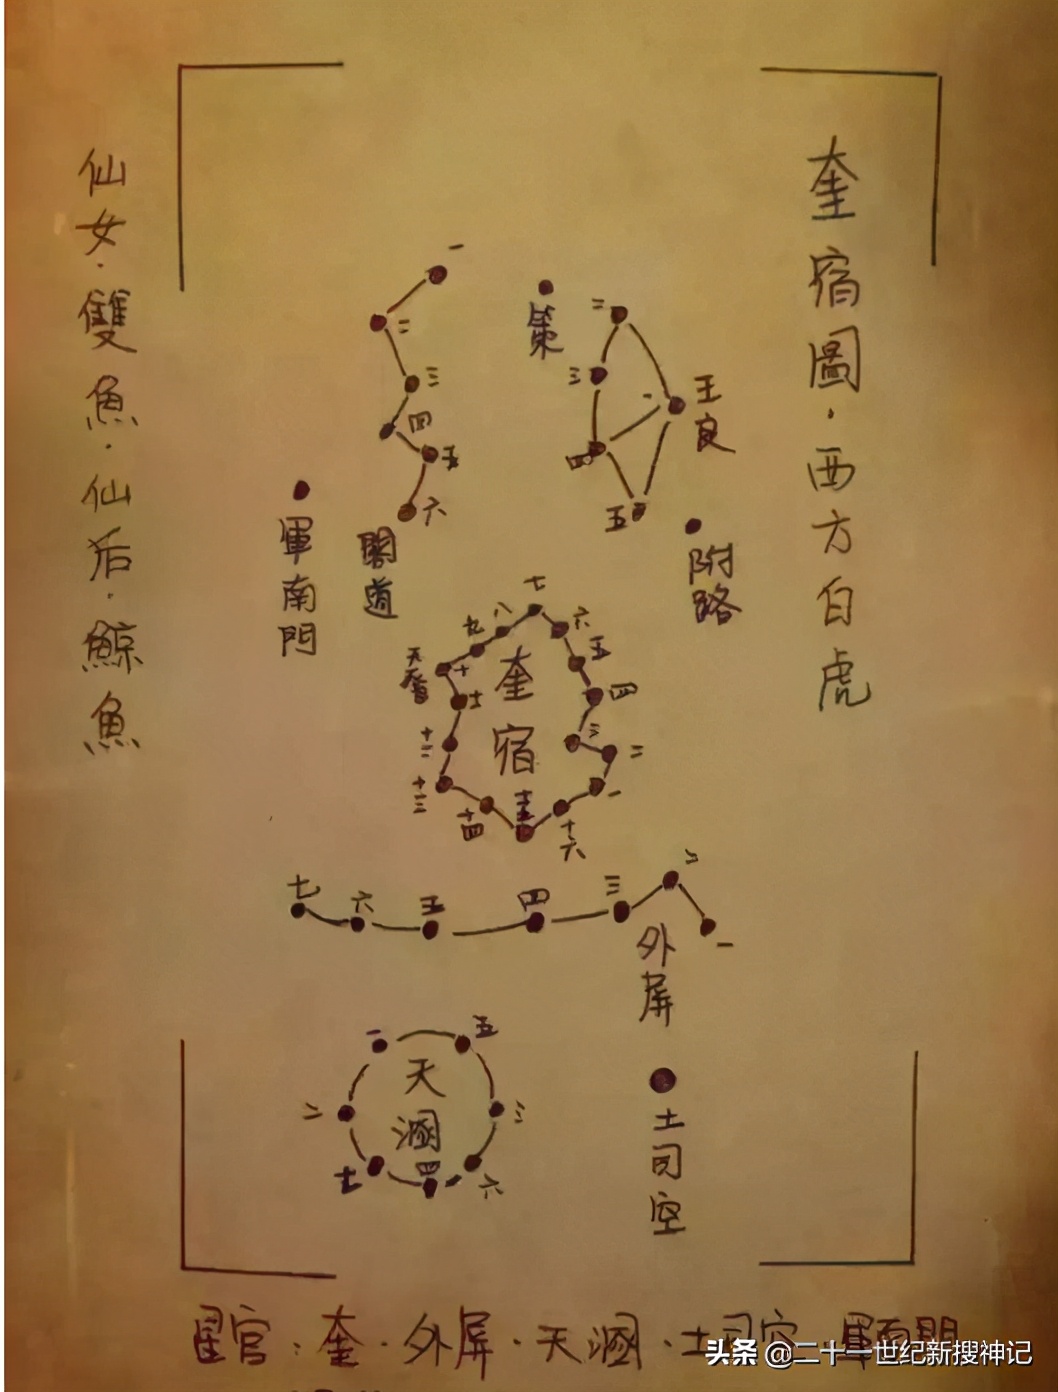 奎宿圖·西方白虎
仙女·雙魚·仙后·鯨魚
一
二
三
四
五
六
閣道
策
二
三
四
五
一
王良
附路
軍南門
七
八
六
九
五
天
十
四
十一
三
十二
二
十三
一
十四
十五
十六
奎宿
七
六
五
四
三
二
一
外屏
一
五
二
三
七
四
六
天溷
土司空
星官:奎·外屏·天溷·土司空·軍南門
头条 @二十一世纪新搜神记